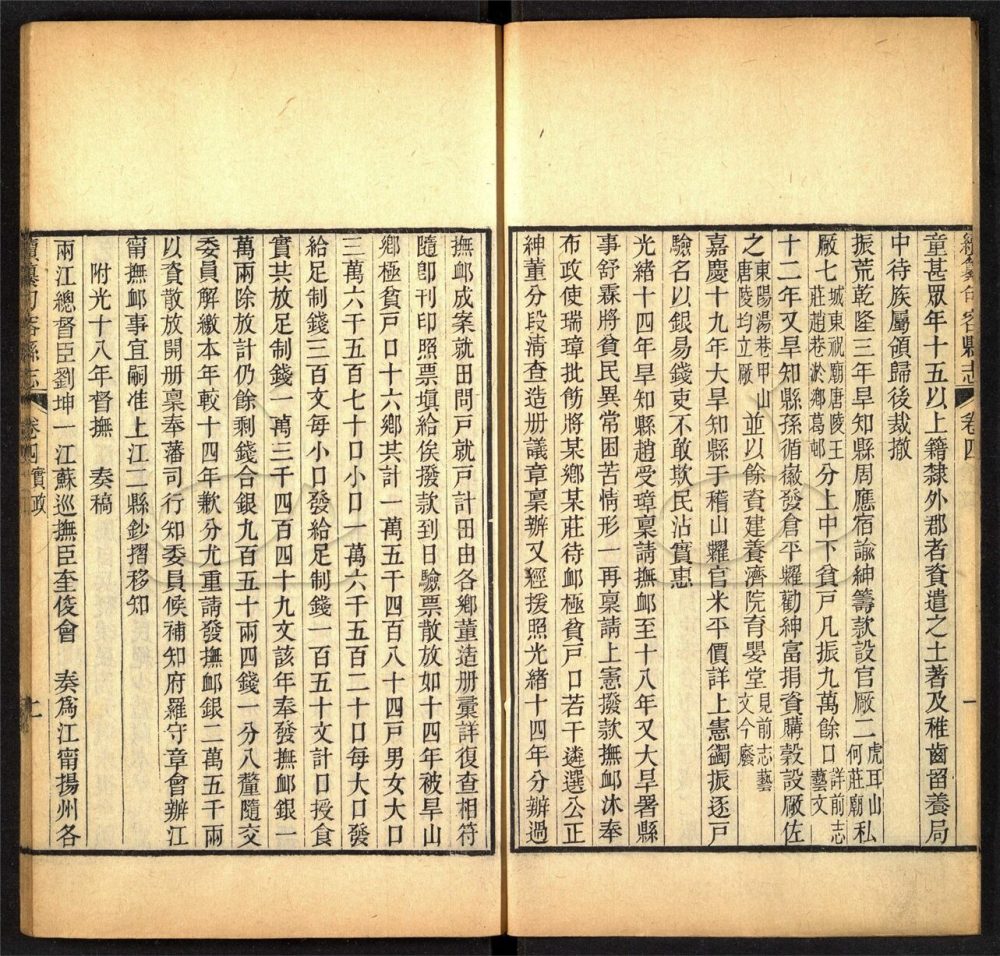 續纂句容縣志 卷四
童甚眾年十五以上籍隸外郡者資遣之土著及稚齒畱養局
中待族屬領歸後裁撤
振荒乾隆三年旱知縣周應宿諭紳籌款設官厰二虎耳山何莊廟私
厰七城東祝廟唐陵王莊趙巷淤鄉葛邨分上中下貧戸凡振九萬餘口詳前志藝文
十二年又旱知縣孫循徽發倉平糶勸紳富捐資購穀設厰佐
之東陽湯巷甲山唐陵均立厰並以餘資建養濟院育嬰堂見前志藝文今廢
嘉慶十九年大旱知縣于稽山糶官米平價詳上憲蠲振逐戸
驗名以銀易錢吏不敢欺民沾實惠
光緒十四年旱知縣趙受璋稟請撫卹至十八年又大旱署縣
事舒霖將貧民異常困苦情形一再稟請上憲撥款撫卹沐奉
布政使瑞璋批飭將某鄉某莊待卹極貧戸口若干遴選公正
紳董分段淸查造册議章稟辦又經援照光緒十四年分辦過
撫卹成案就田問戸就戸計田由各鄉董造册彙詳復查相符
隨卽刊印照票塡給俟撥款到日驗票散放如十四年被旱山
鄉極貧戸口十六鄉共計一萬五千四百八十四戸男女大口
三萬六千五百七十口小口一萬六千五百二十口每大口發
給足制錢三百文每小口發給足制錢一百五十文計口授食
實共放足制錢一萬三千四百四十九文該年奉發撫卹銀一
萬兩除放計仍餘剩錢合銀九百五十兩四錢一分八釐隨交
委員解繳本年較十四年歉分尤重請發撫卹銀二萬五千兩
以資散放開册稟奉藩司行知委員候補知府羅守章會辦江
甯撫卹事宜嗣准上江二縣鈔摺移知
附光十八年督撫 奏稿
兩江總督臣劉坤一江蘇巡撫臣奎俊會 奏爲江甯揚州各
續纂句容縣志 卷四 實政